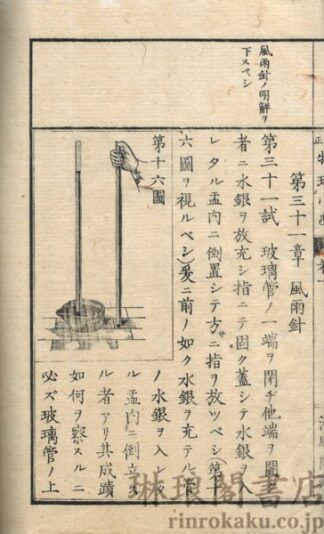 風雨針ノ明解ヲ
下スベシ
第三十一章 風雨針
第三十一試 玻璃管ノ一端ヲ閉ヂ他端ヲ開ク
者ニ水銀ヲ放充シ指ニテ固ク蓋シテ水銀ヲ入
レタル盂内ニ倒置シテ方ニ指ヲ放ツベシ(第十
六圖ヲ視ルベシ)爰ニ前ノ如ク水銀ヲ充テル管
第十六圖
ノ水銀ヲ入レ
ル盂内ニ倒立ス
ル者アリ其成蹟
如何ヲ察スルニ
必ズ玻璃管ノ上
琳琅閣書店
rinrokaku.co.jp